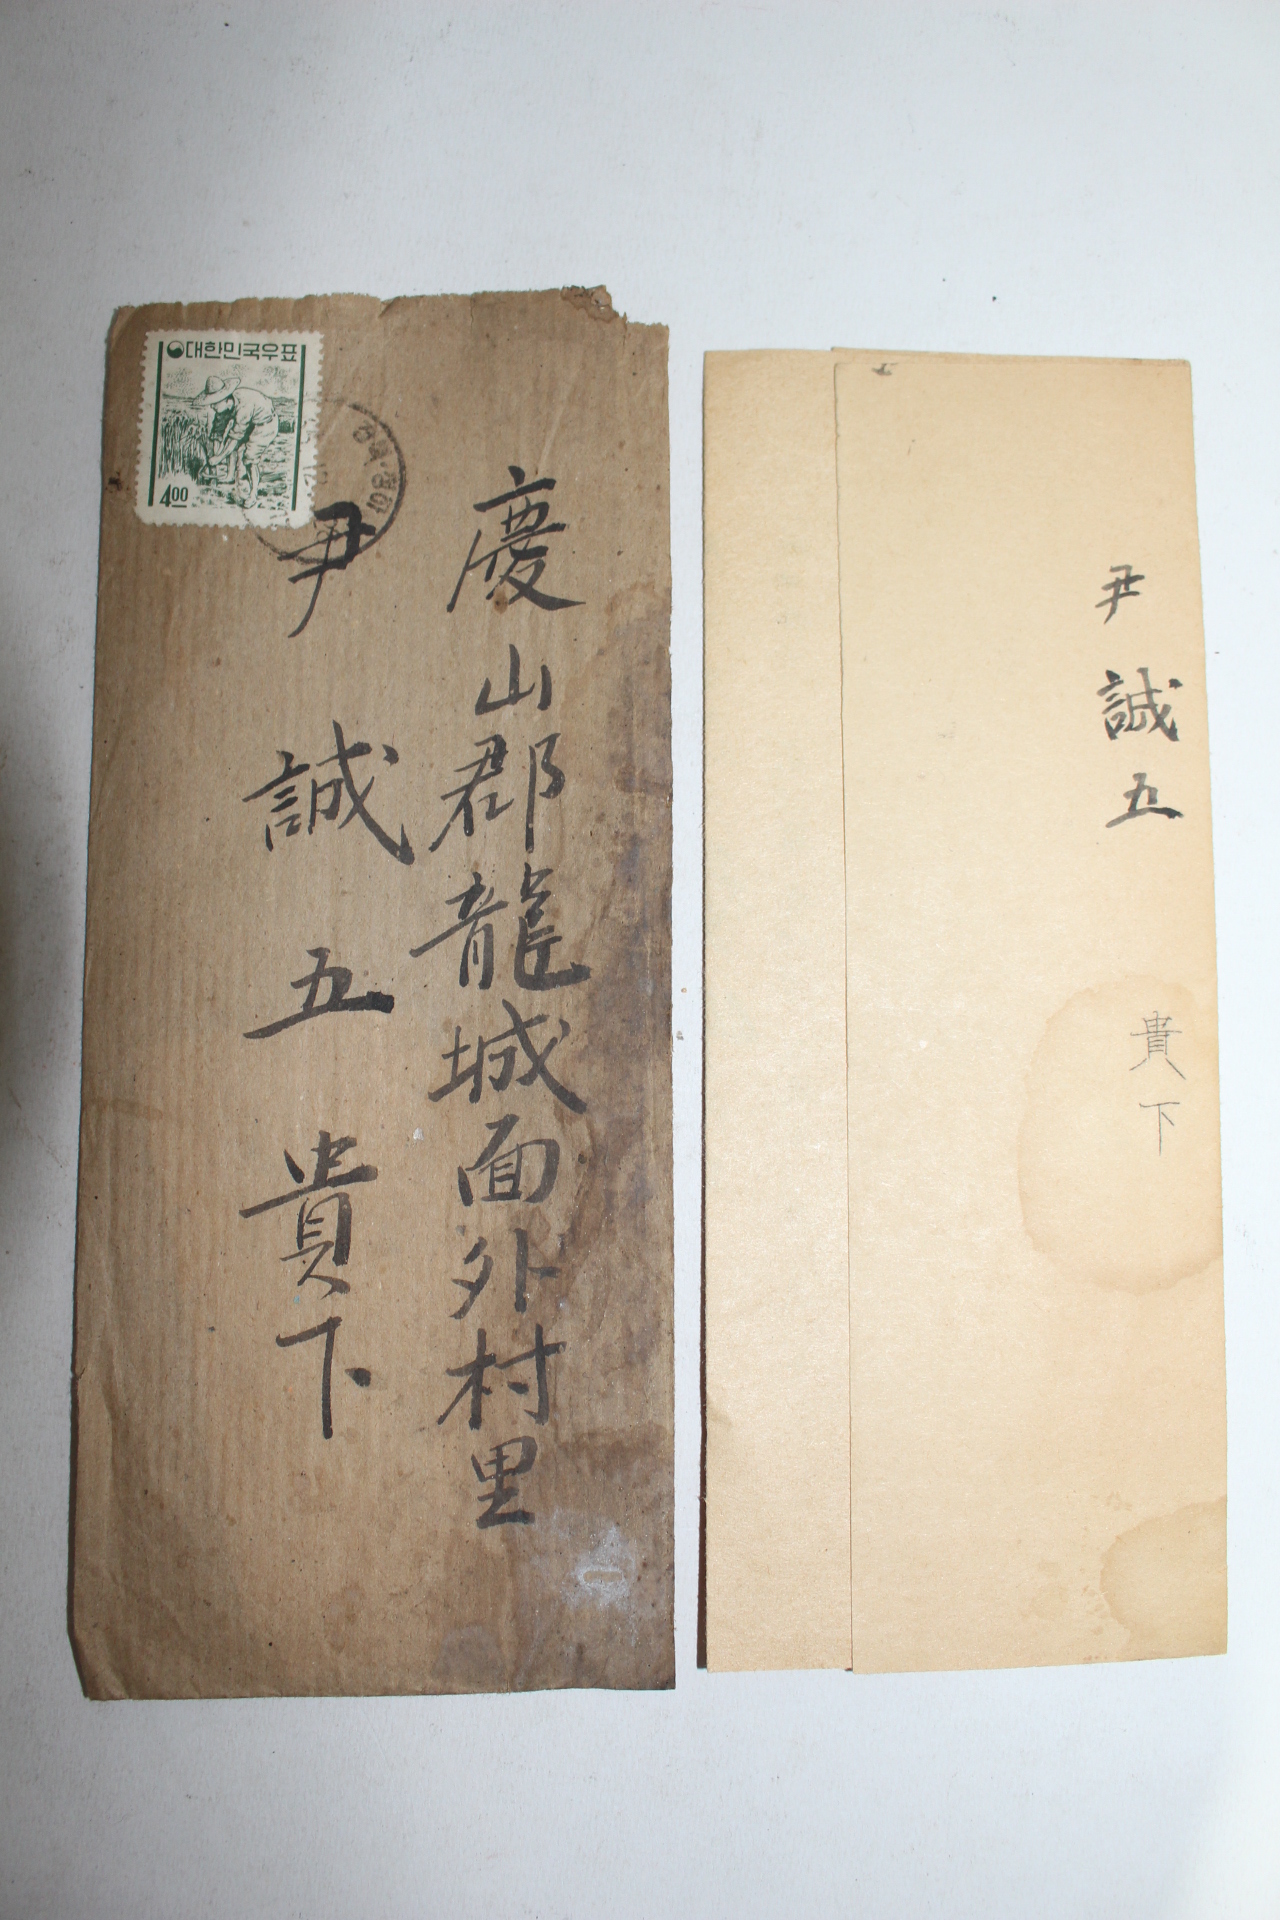 대한민국우표
400
慶山郡龍城面外村里
尹誠五貴下
尹誠五 貴下